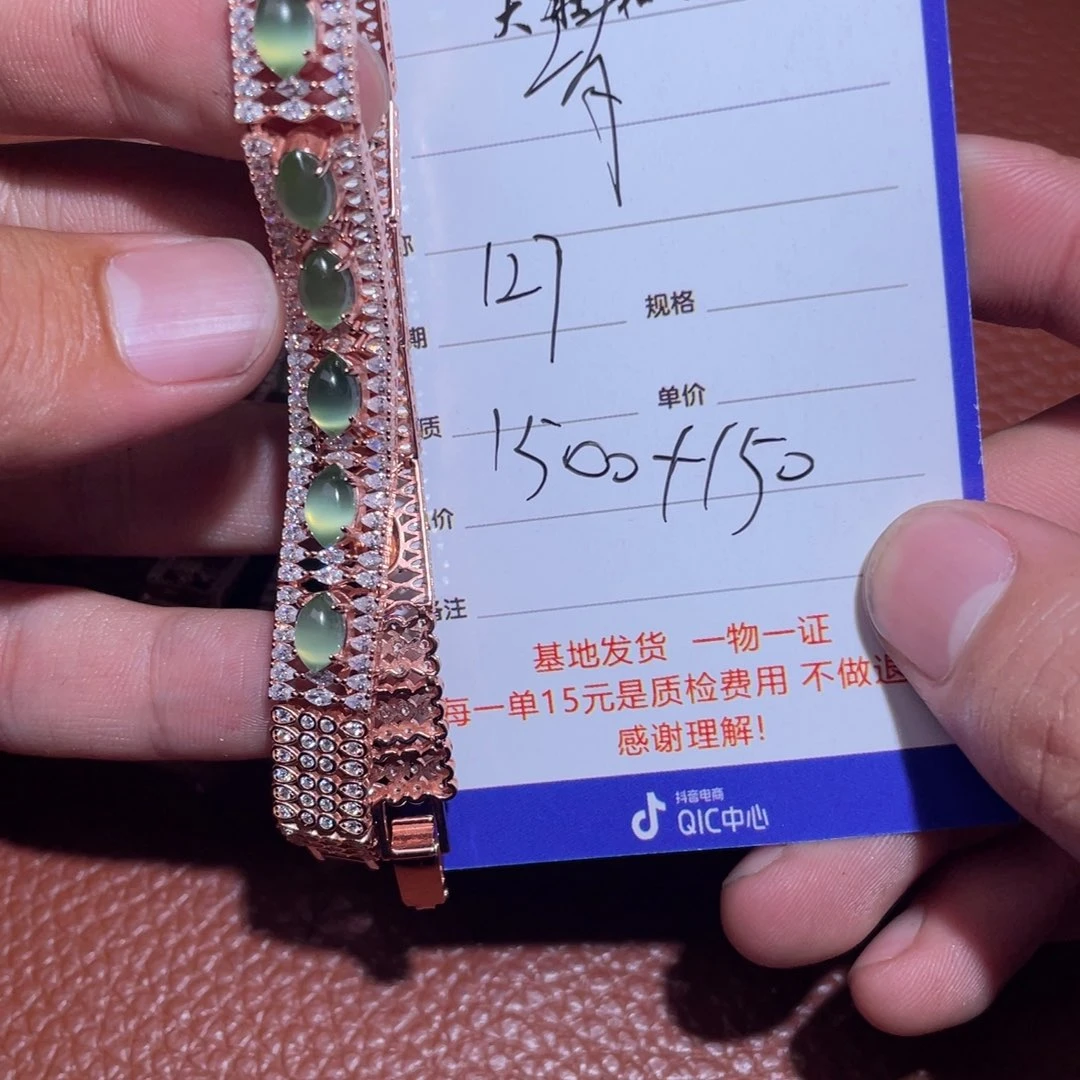 大
127
期
规格
质
单价
1500+150
价
备注
基地发货 一物一证
每一单15元是质检费用 不做退
感谢理解!
抖音电商
QIC中心